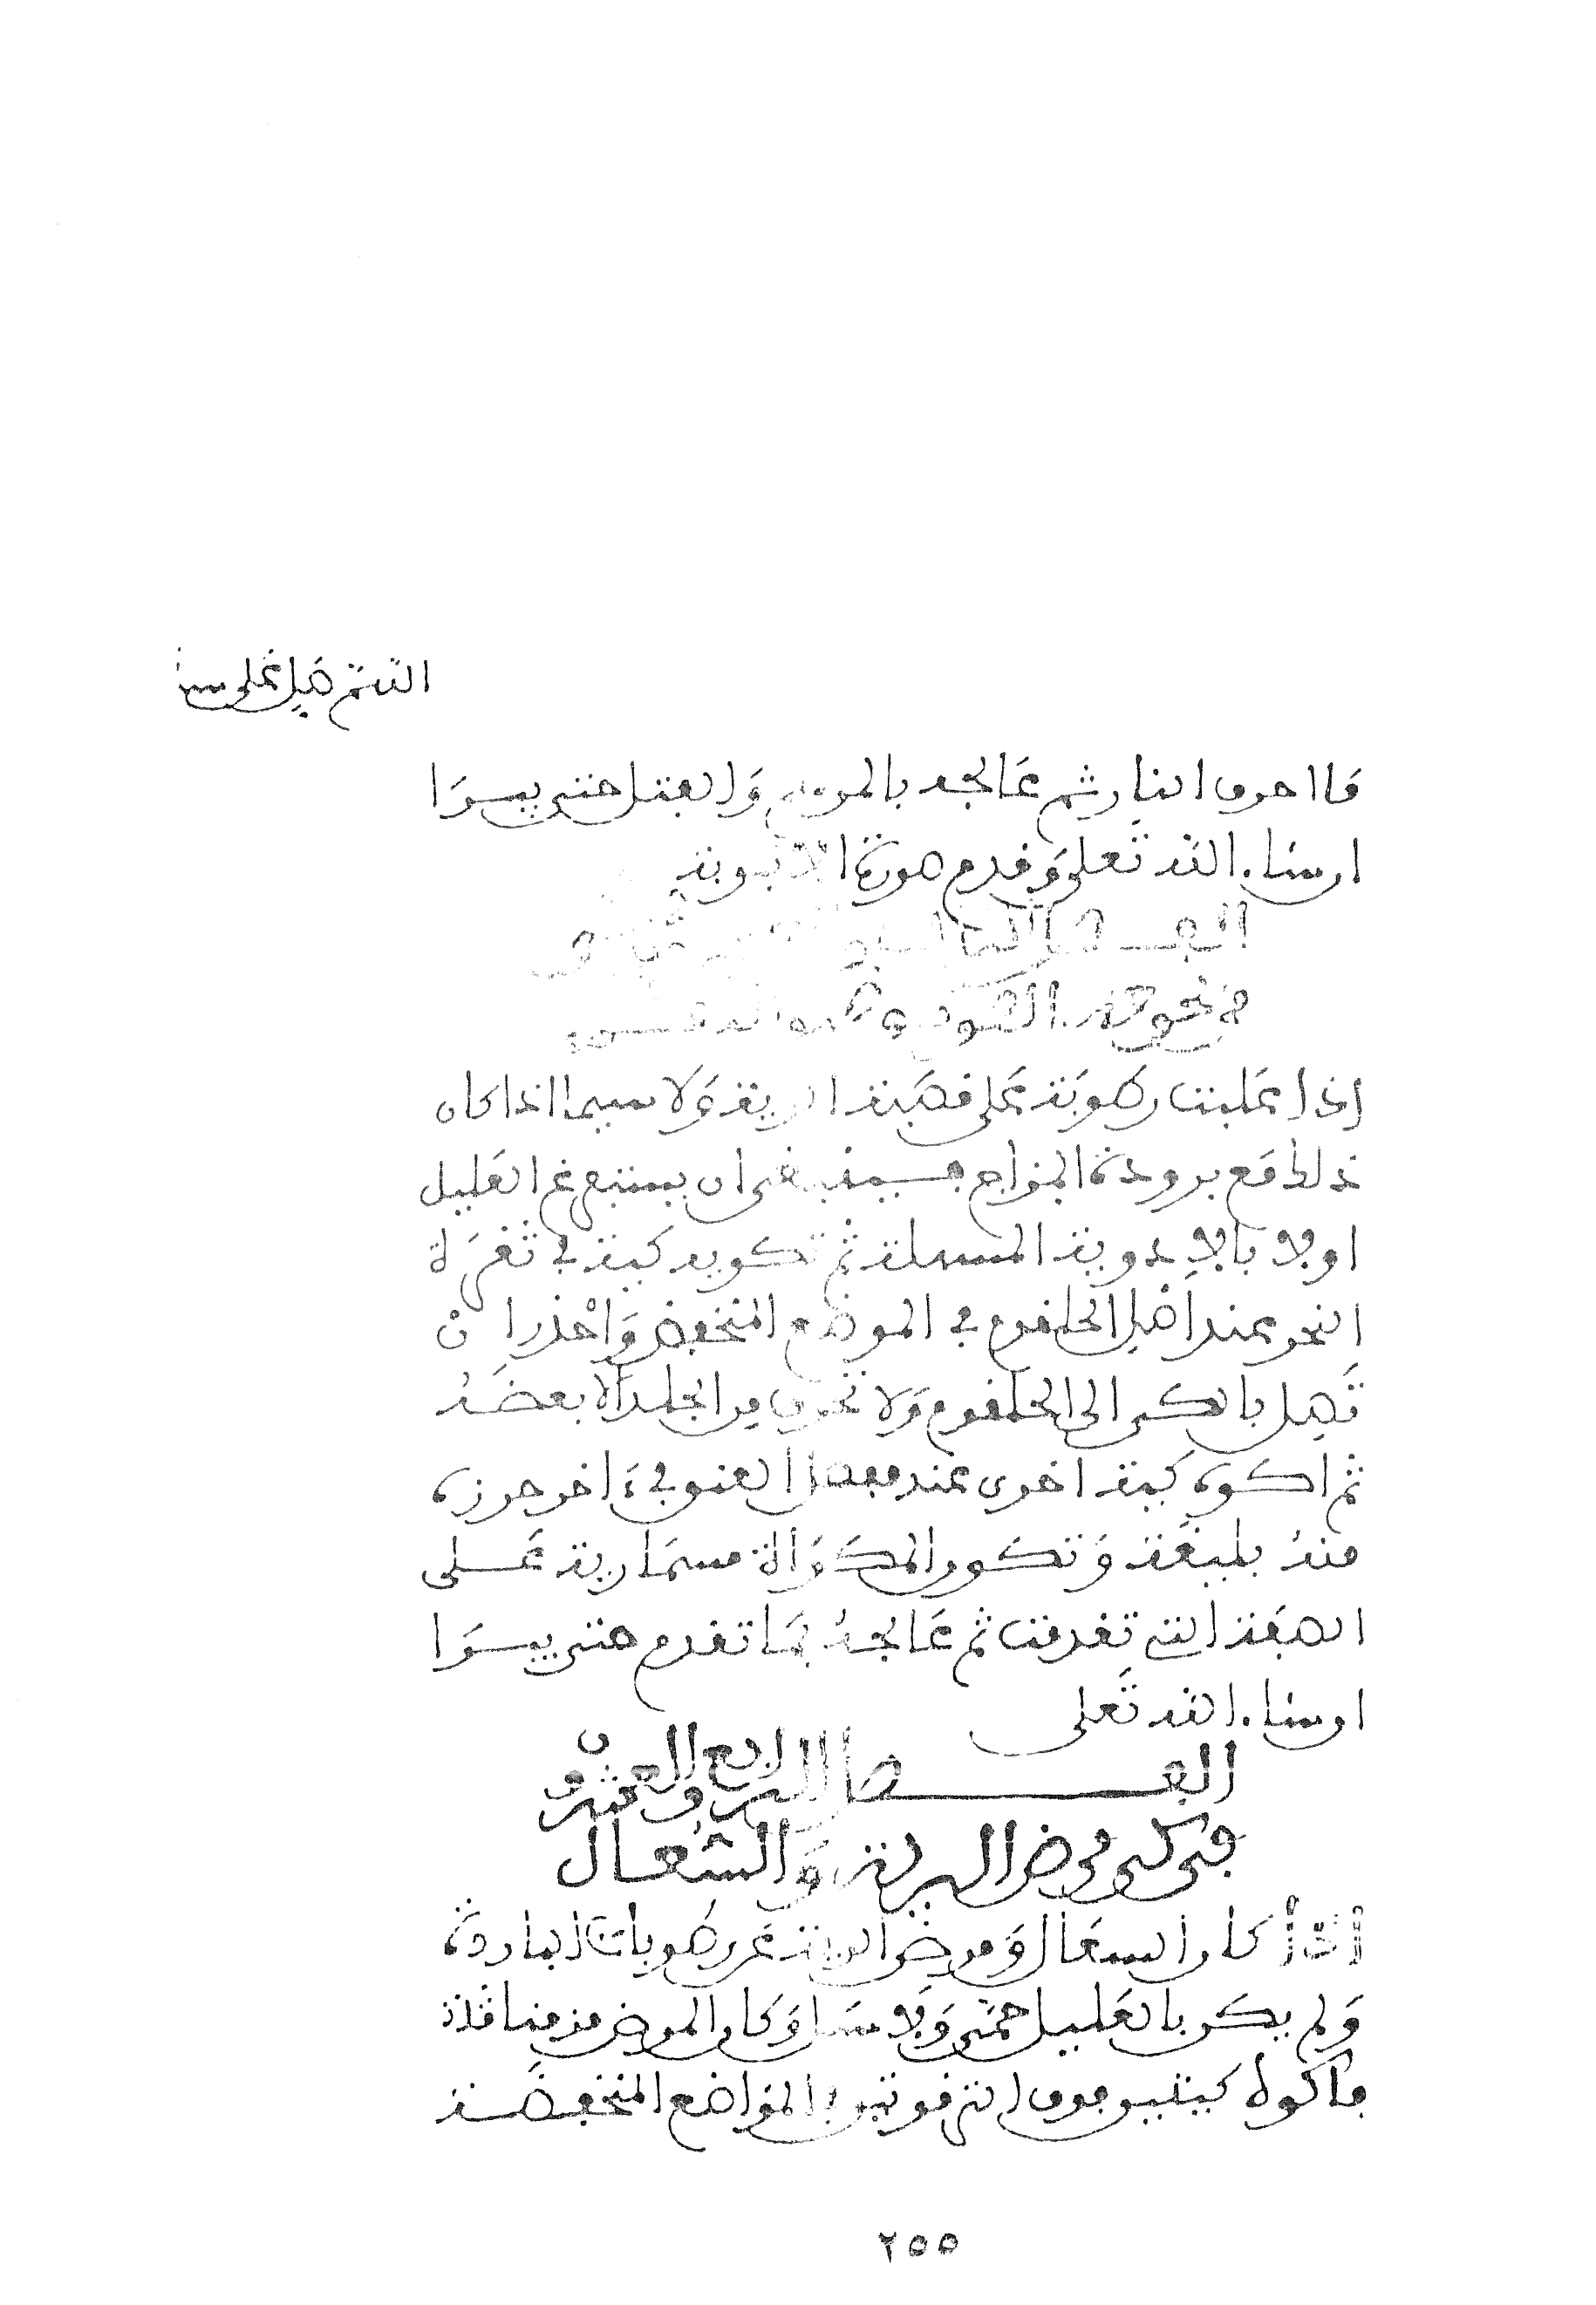 ما احرق النار ثم عالجه بالمرهم والفتل حتى يبرا
ان شا الله تعلى وهذه صورة الانبوبة
الفصل
في نحر
إذا غلبت رطوبة على قصبة الرية ولا سيما اذا كان
ذلك مع برودة المزاج فينبغي ان يستفرغ العليل
اولا بالادوية المسهلة ثم تكويه كية في ثغرة
النحر عند اصل الحلقوم في الموضع المنخفض واحذر ان
تصل بالكي الى الحلقوم ولا تحرق من الجلد الا بعضه
ثم اكوه كية اخرى عند مفصل العنق في ءاخر خرزة
منه بليغة وتكون المكواة مسمارية على
الصفة التي تقدمت ثم عالجه بما تقدم حتى يبرا
ان شا الله تعلى
الفصل الرابع والعشرون
في كي مرض الرية والسعال
إذا كان السعال ومرض الرية عن رطوبات باردة
ولم يكن بالعليل حمى ولا سل وكان المرض مزمنا
فاكوه كيتين فوق الترقوتين في المواضع المنخفضة
٢٥٥